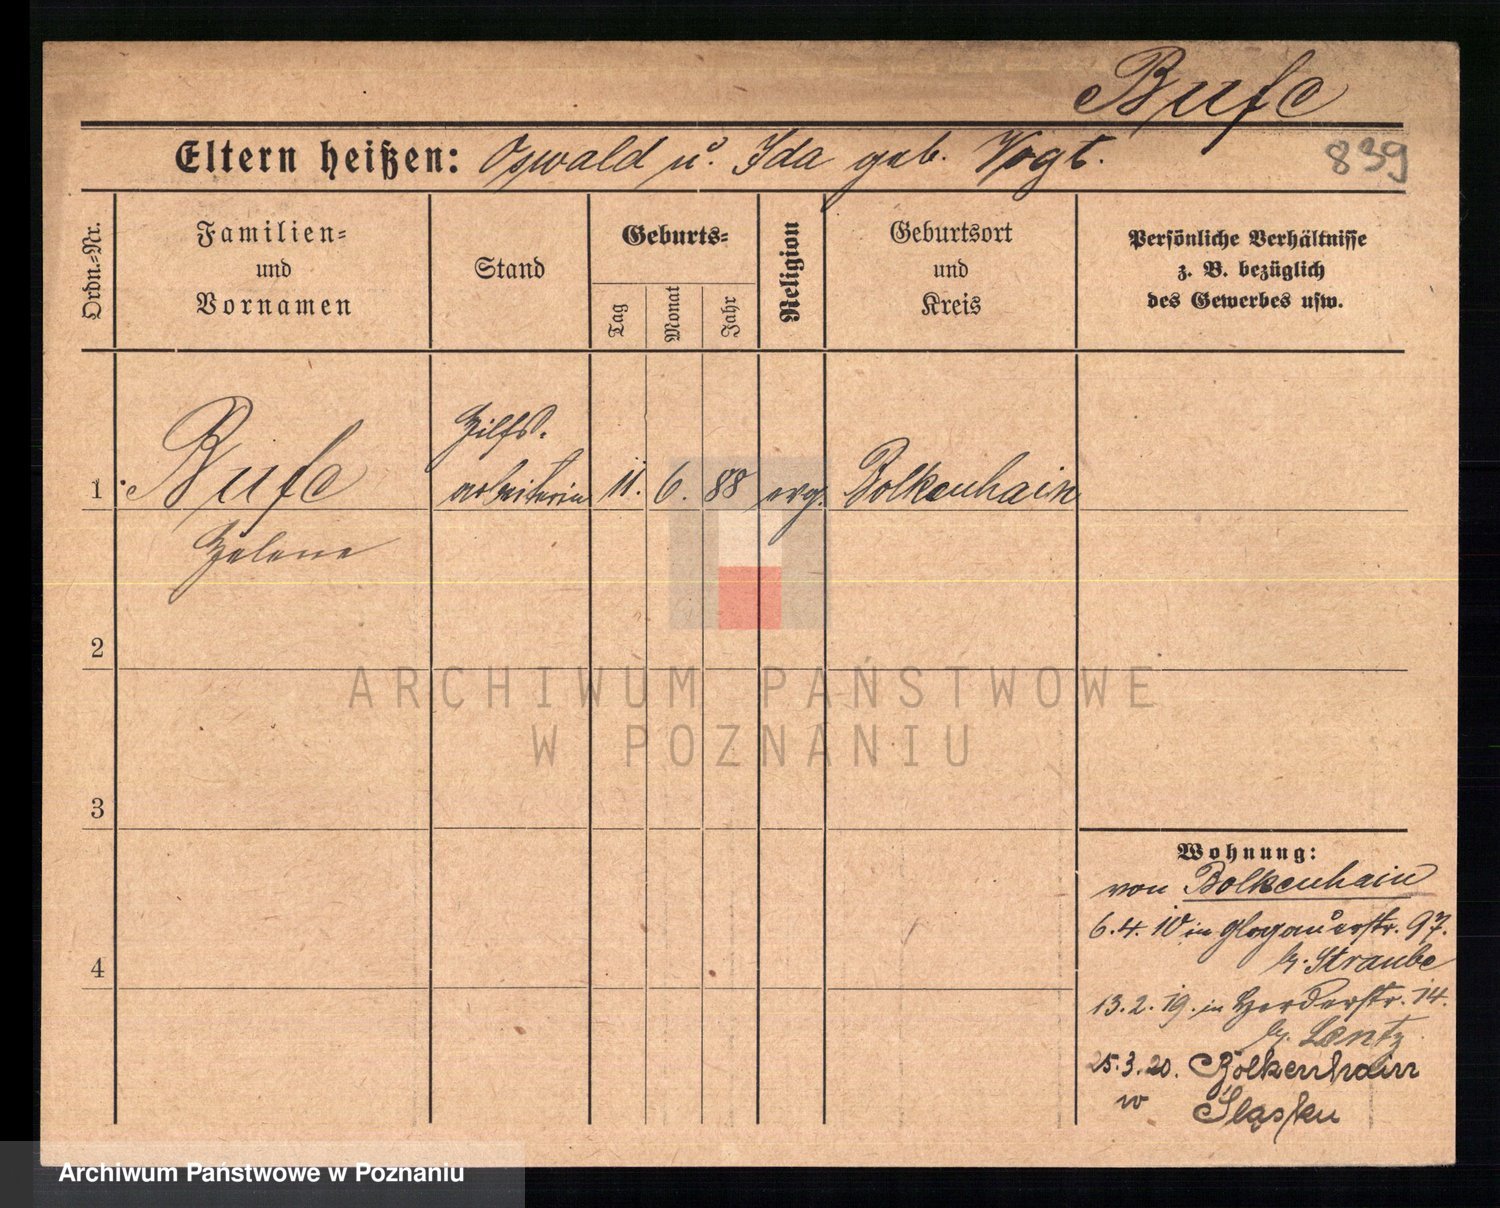 Bufe
Eltern heißen: Oswald u. Ida geb. Vogt.
839
Ordn.-Nr.
Familien-
und
Vornamen
Stand
Geburts-
Tag
Monat
Jahr
Religion
Geburtsort
und
Kreis
Persönliche Verhältnisse
z. B. bezüglich
des Gewerbes usw.
1 Bufe Hilfs-
arbeiterin 11. 6. 88 evg. Bolkenhain
Helene
2
3
4
Wohnung:
von Bolkenhain
6.4.10 in Glogauerstr. 97.
b. Straube
13.2.19. in Herderstr. 14.
b. Lentz
25.3.20. Bolkenhain
w Śląsku
ARCHIWUM PAŃSTWOWE
W POZNANIU
Archiwum Państwowe w Poznaniu